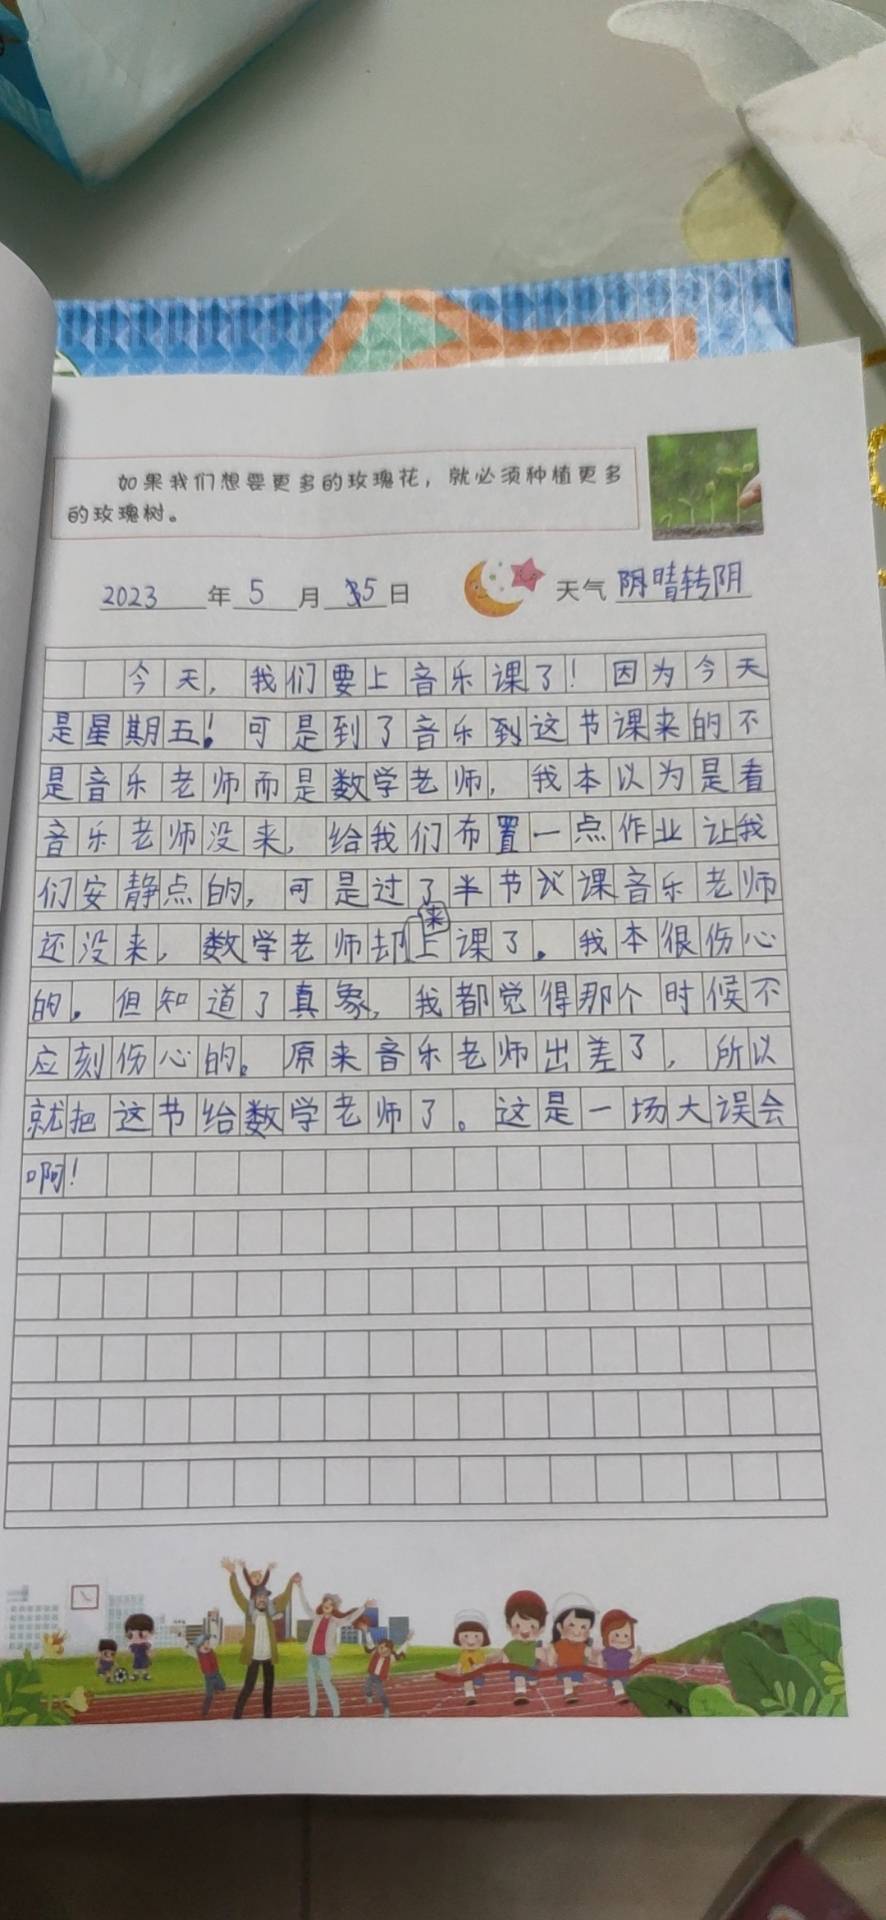 如果我们想要更多的玫瑰花，就必须种植更多
的玫瑰树。
2023年5月5日 天气 阴晴转阴
今天，我们要上音乐课了！因为今天
是星期五！可是到了音乐到这节课来的不
是音乐老师而是数学老师，我本以为是看
音乐老师没来，给我们布置一点作业让我
们安静点的，可是过了半节课音乐老师
还没来，数学老师却来上课了。我本很伤心
的。但知道了真象，我都觉得那个时候不
应刻伤心的。原来音乐老师出差了，所以
就把这节给数学老师了。这是一场大误会
啊！